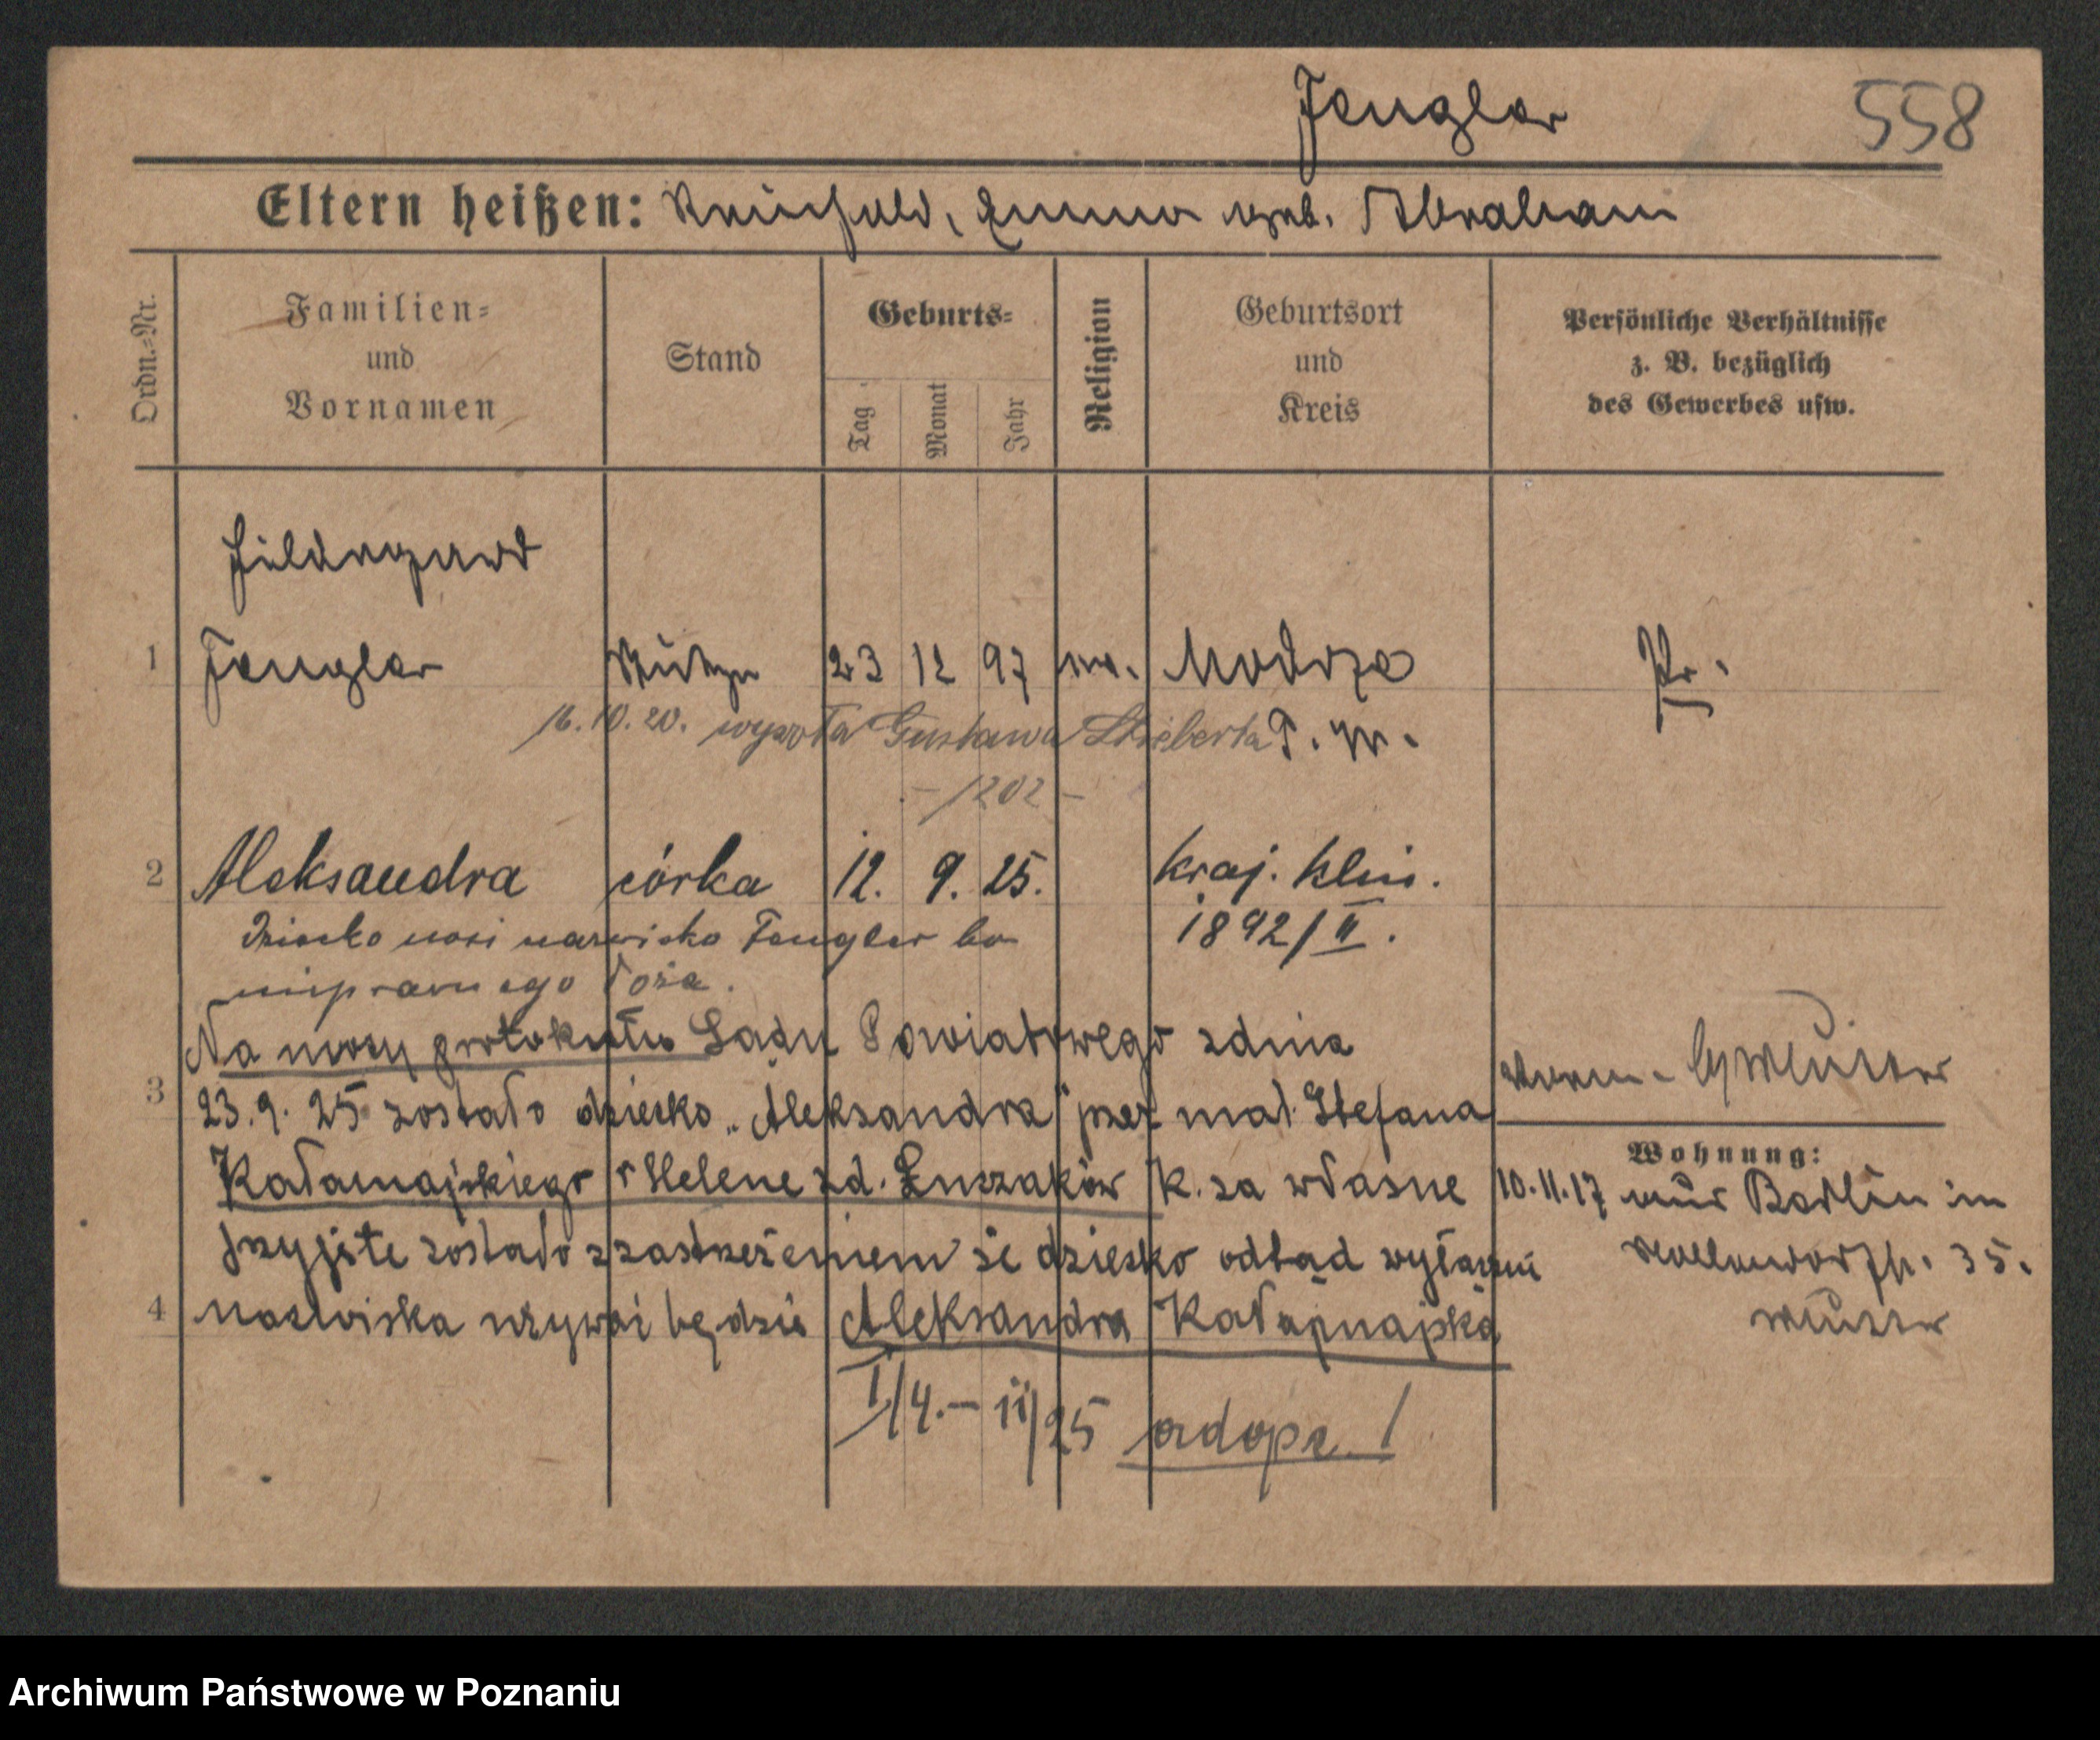 Fengler 558
Eltern heißen: Reinhold, Emma geb. Abraham
Ordn.-Nr.
Familien-
und
Vornamen
Stand
Geburts-
Tag
Monat
Jahr
Religion
Geburtsort
und
Kreis
Persönliche Verhältnisse
z. B. bezüglich
des Gewerbes usw.
Hildegard
1 Fengler 23 12 97 Modrze Pr.
16. 10. 20. wyszła Gustawa Stieberta P. W.
- 1202 -
2 Aleksandra córka 12. 9. 25. kraj. klin.
Dziecko nosi nazwisko Fengler bo 1892/II.
nieprawnego łoża.
Na mocy protokułu Sądu Powiatowego zdnia
3 23. 9. 25 zostało dziecko „Aleksandra" przez mał. Stefana
Kałamajskiego i Helene zd. Łuszaków K. za własne
Wohnung:
10. 11. 17 nur Berlin in
przyjęte zostało z zastrzeżeniem że dziecko odtąd 35.
4 nazwiska używać będzie Aleksandra Kałamajska
I/4.- 11/25 adopt. !
Archiwum Państwowe w Poznaniu